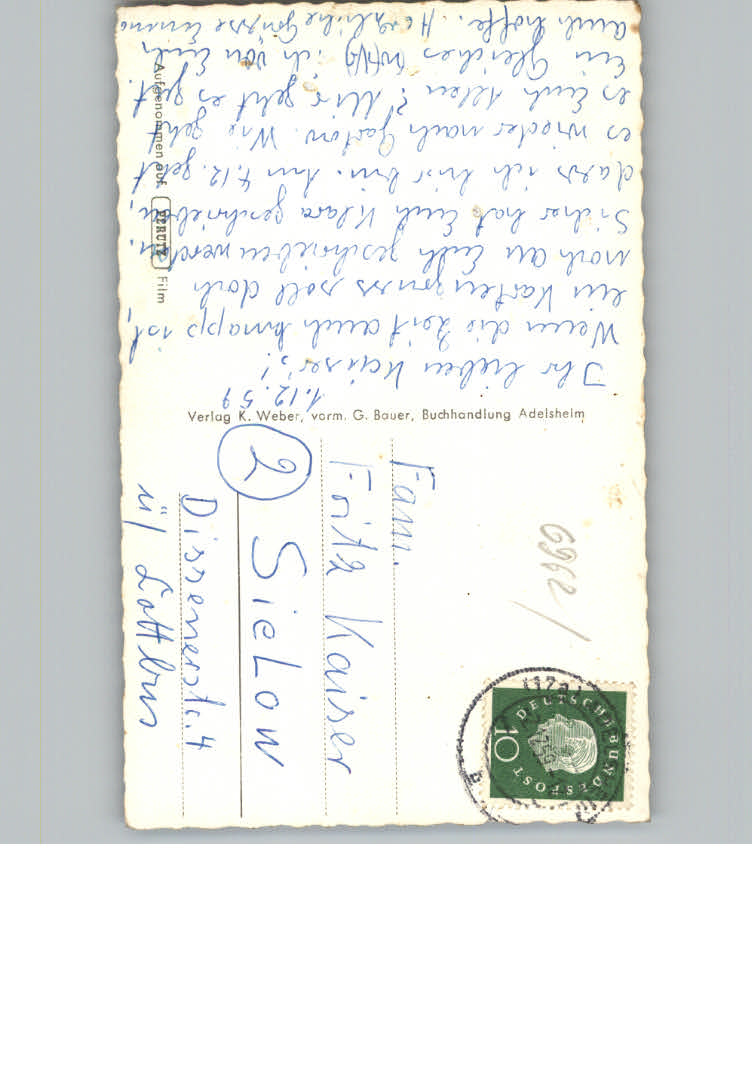 1.12.59
Ihr lieben Kaiser's!
Wenn die Zeit auch knapp ist,
ein Kartengruss soll doch
noch an Euch geschrieben werden.
Sicher hat Euch Klara geschrieben,
dass ich hier bin. Am 4.12. geht
es wieder nach Gartow. Wie geht
es Euch allen? Mir geht es gut.
Ein Gleiches ich von Euch
auch hoffe. Herzliche Grüsse
Aufgenommen auf PERUTZ Film
Verlag K. Weber, vorm. G. Bauer, Buchhandlung Adelsheim
Fam.
Fritz Kaiser
2 Sielow
Dissenerstr. 4
ü/ Cottbus
6962/
DEUTSCHE BUNDESPOST
10